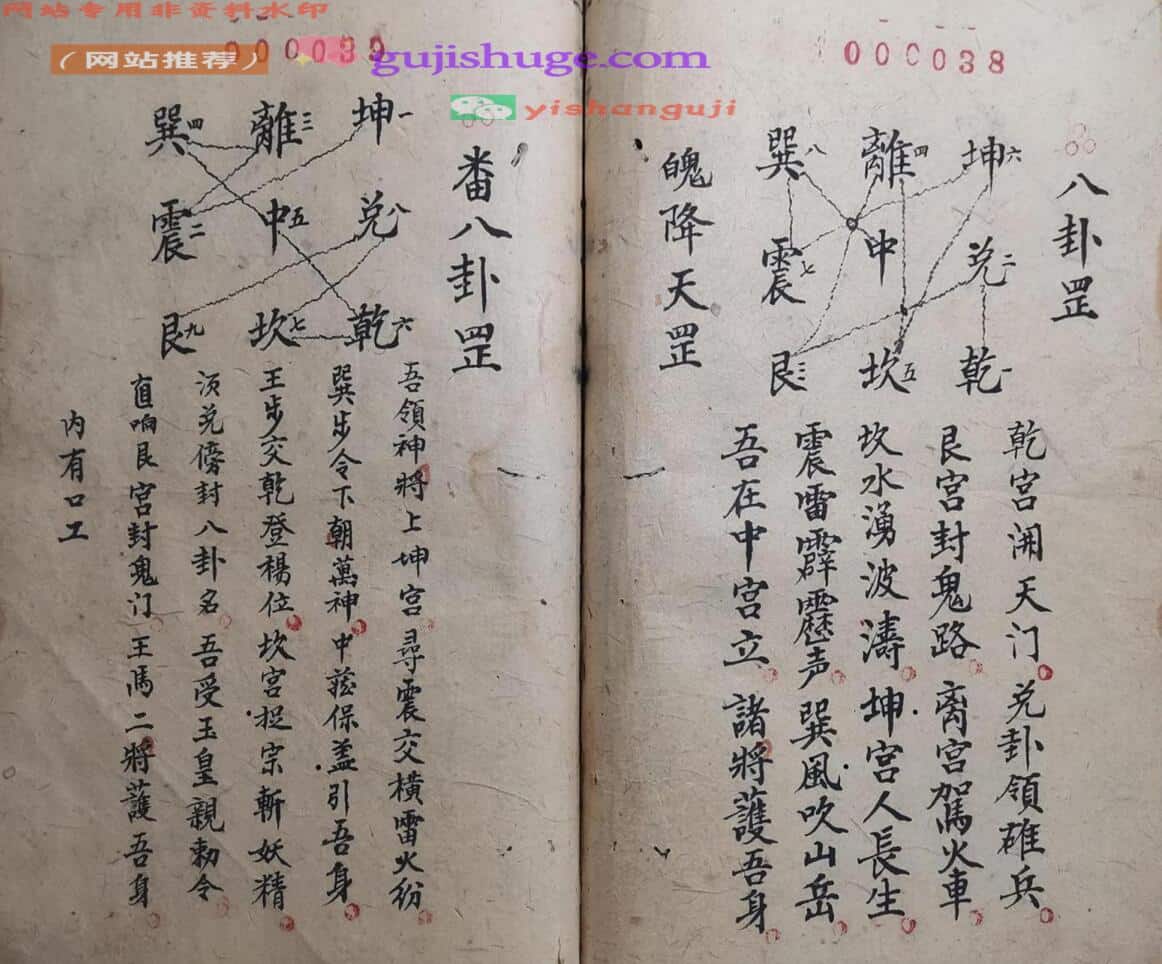 网站专用非资料水印
（网站推荐）
gujishuge.com
yishanguji
000038
八卦罡
坤六 離四 巽八
兑二 中 震七
乾一 坎五 艮三
魄降天罡
乾宫開天门 兑卦領碓兵
艮宫封鬼路 离宫駕火車
坎水湧波濤 坤宫人長生
震雷霹靂声 巽風吹山岳
吾在中宫立 諸將護吾身
000039
畨八卦罡
坤一 離三 巽四
兑八 中五 震二
乾六 坎七 艮九
吾領神將上坤宫 尋震交横雷火纷
巽步令下朝萬神 中蓭保盖引吾身
王步交乾登楊位 坎宫捉宗斬妖精
须兑傍封八卦名 吾受玉皇親勅令
直响艮宫封鬼门 王馬二將護吾身
内有口工